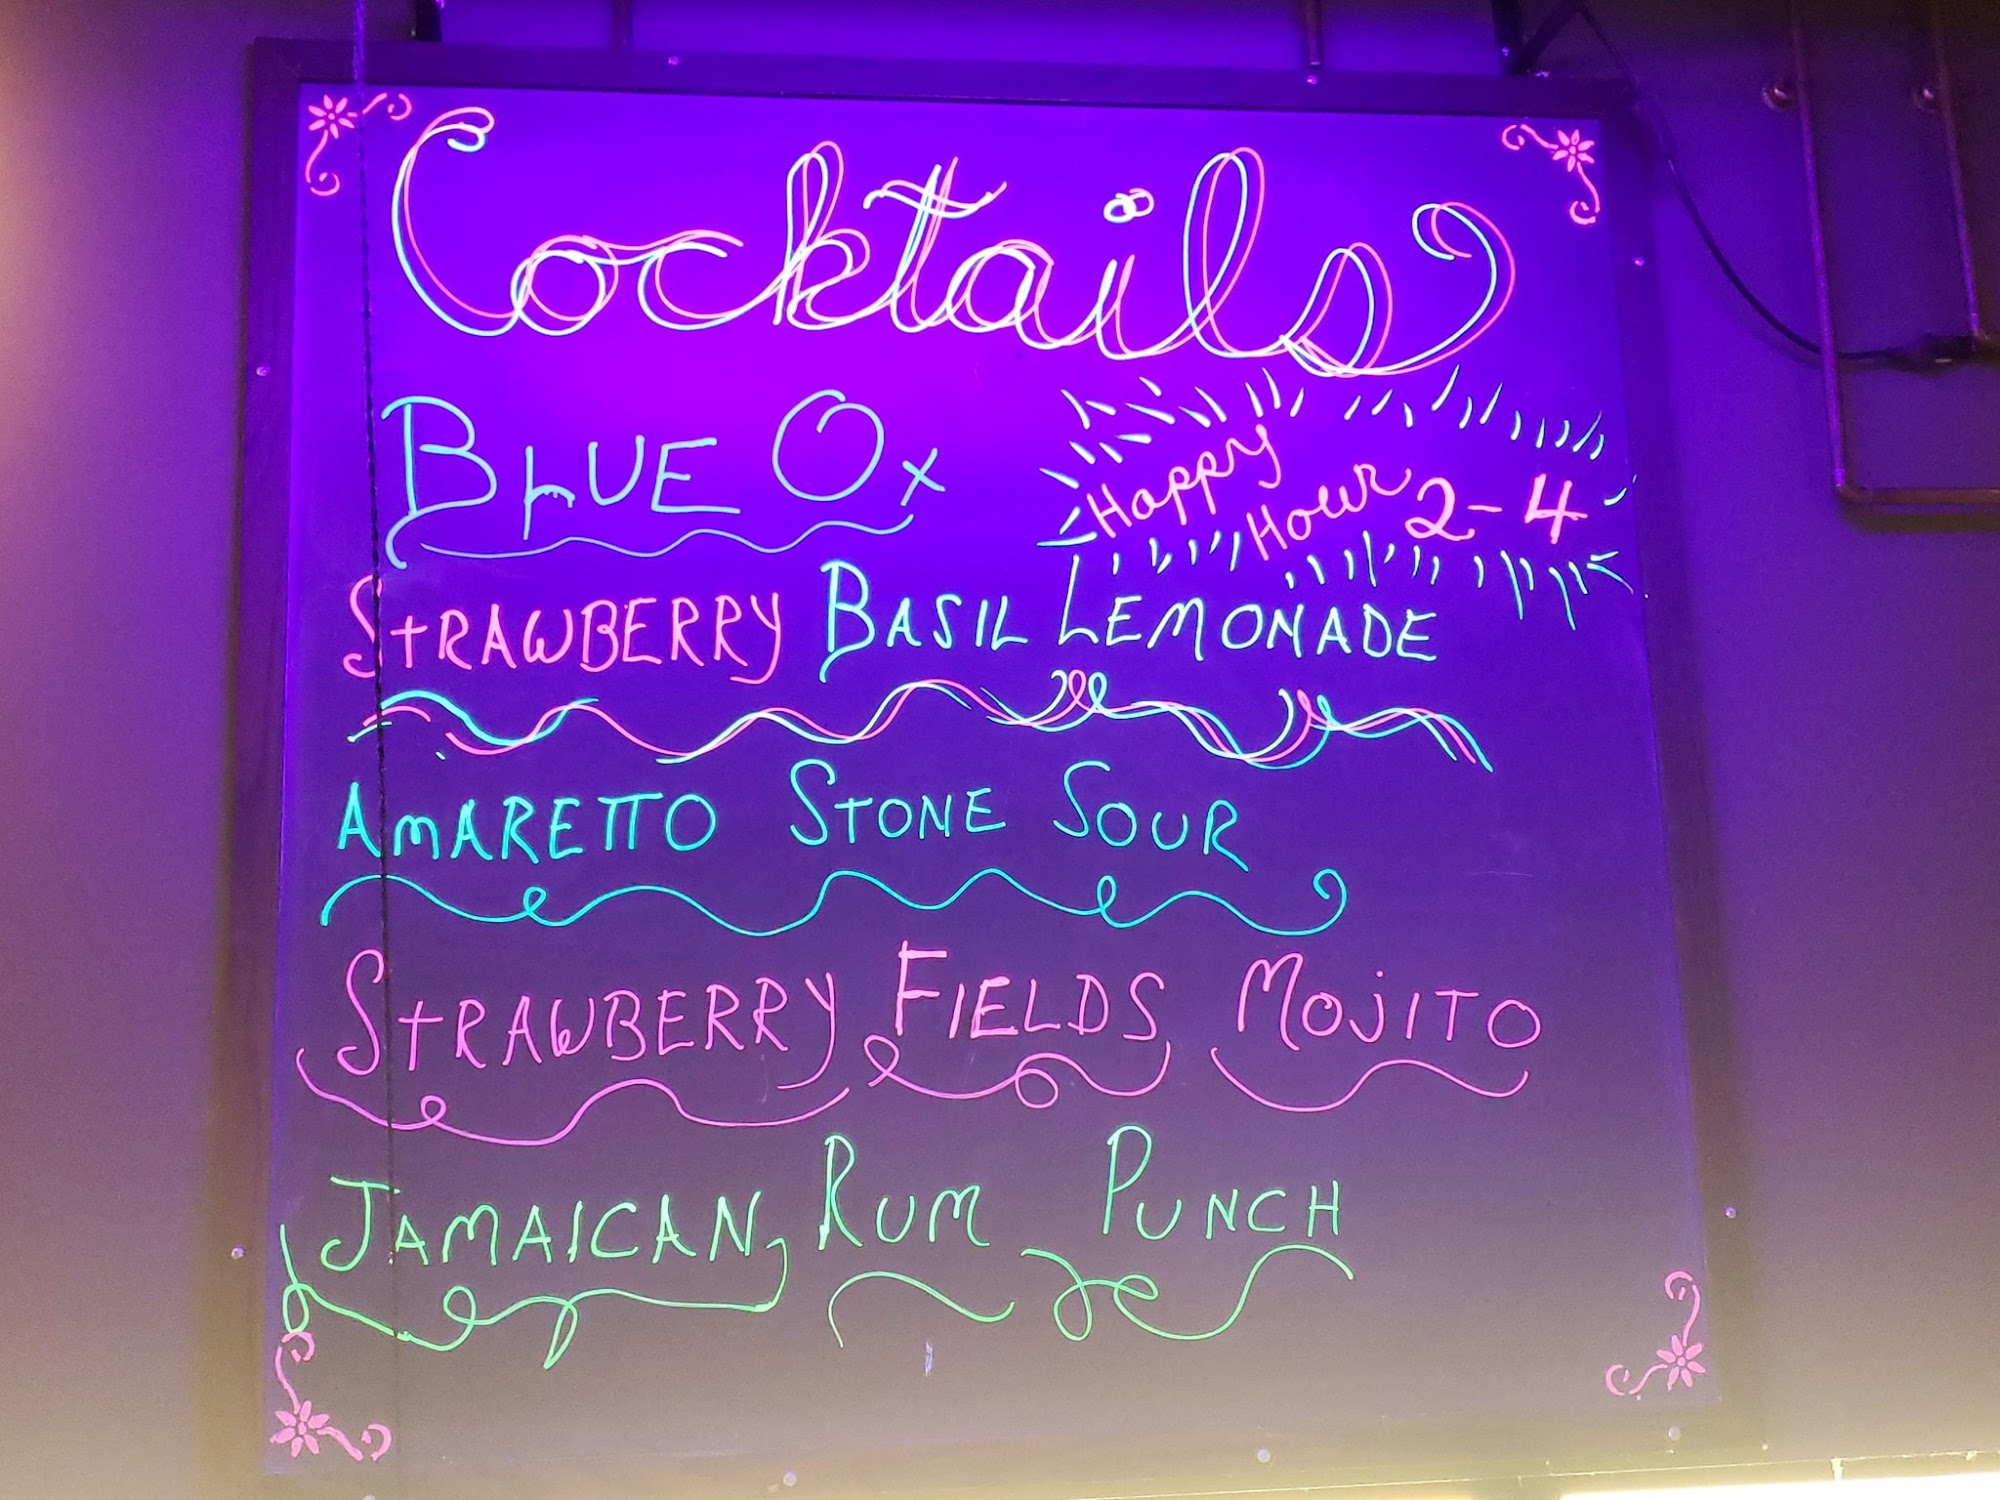 Cocktails
BLUE Ox
Happy
Hour 2-4
STRAWBERRY BASIL LEMONADE
AMARETTO STONE SOUR
STRAWBERRY FIELDS MOJITO
JAMAICAN RUM PUNCH